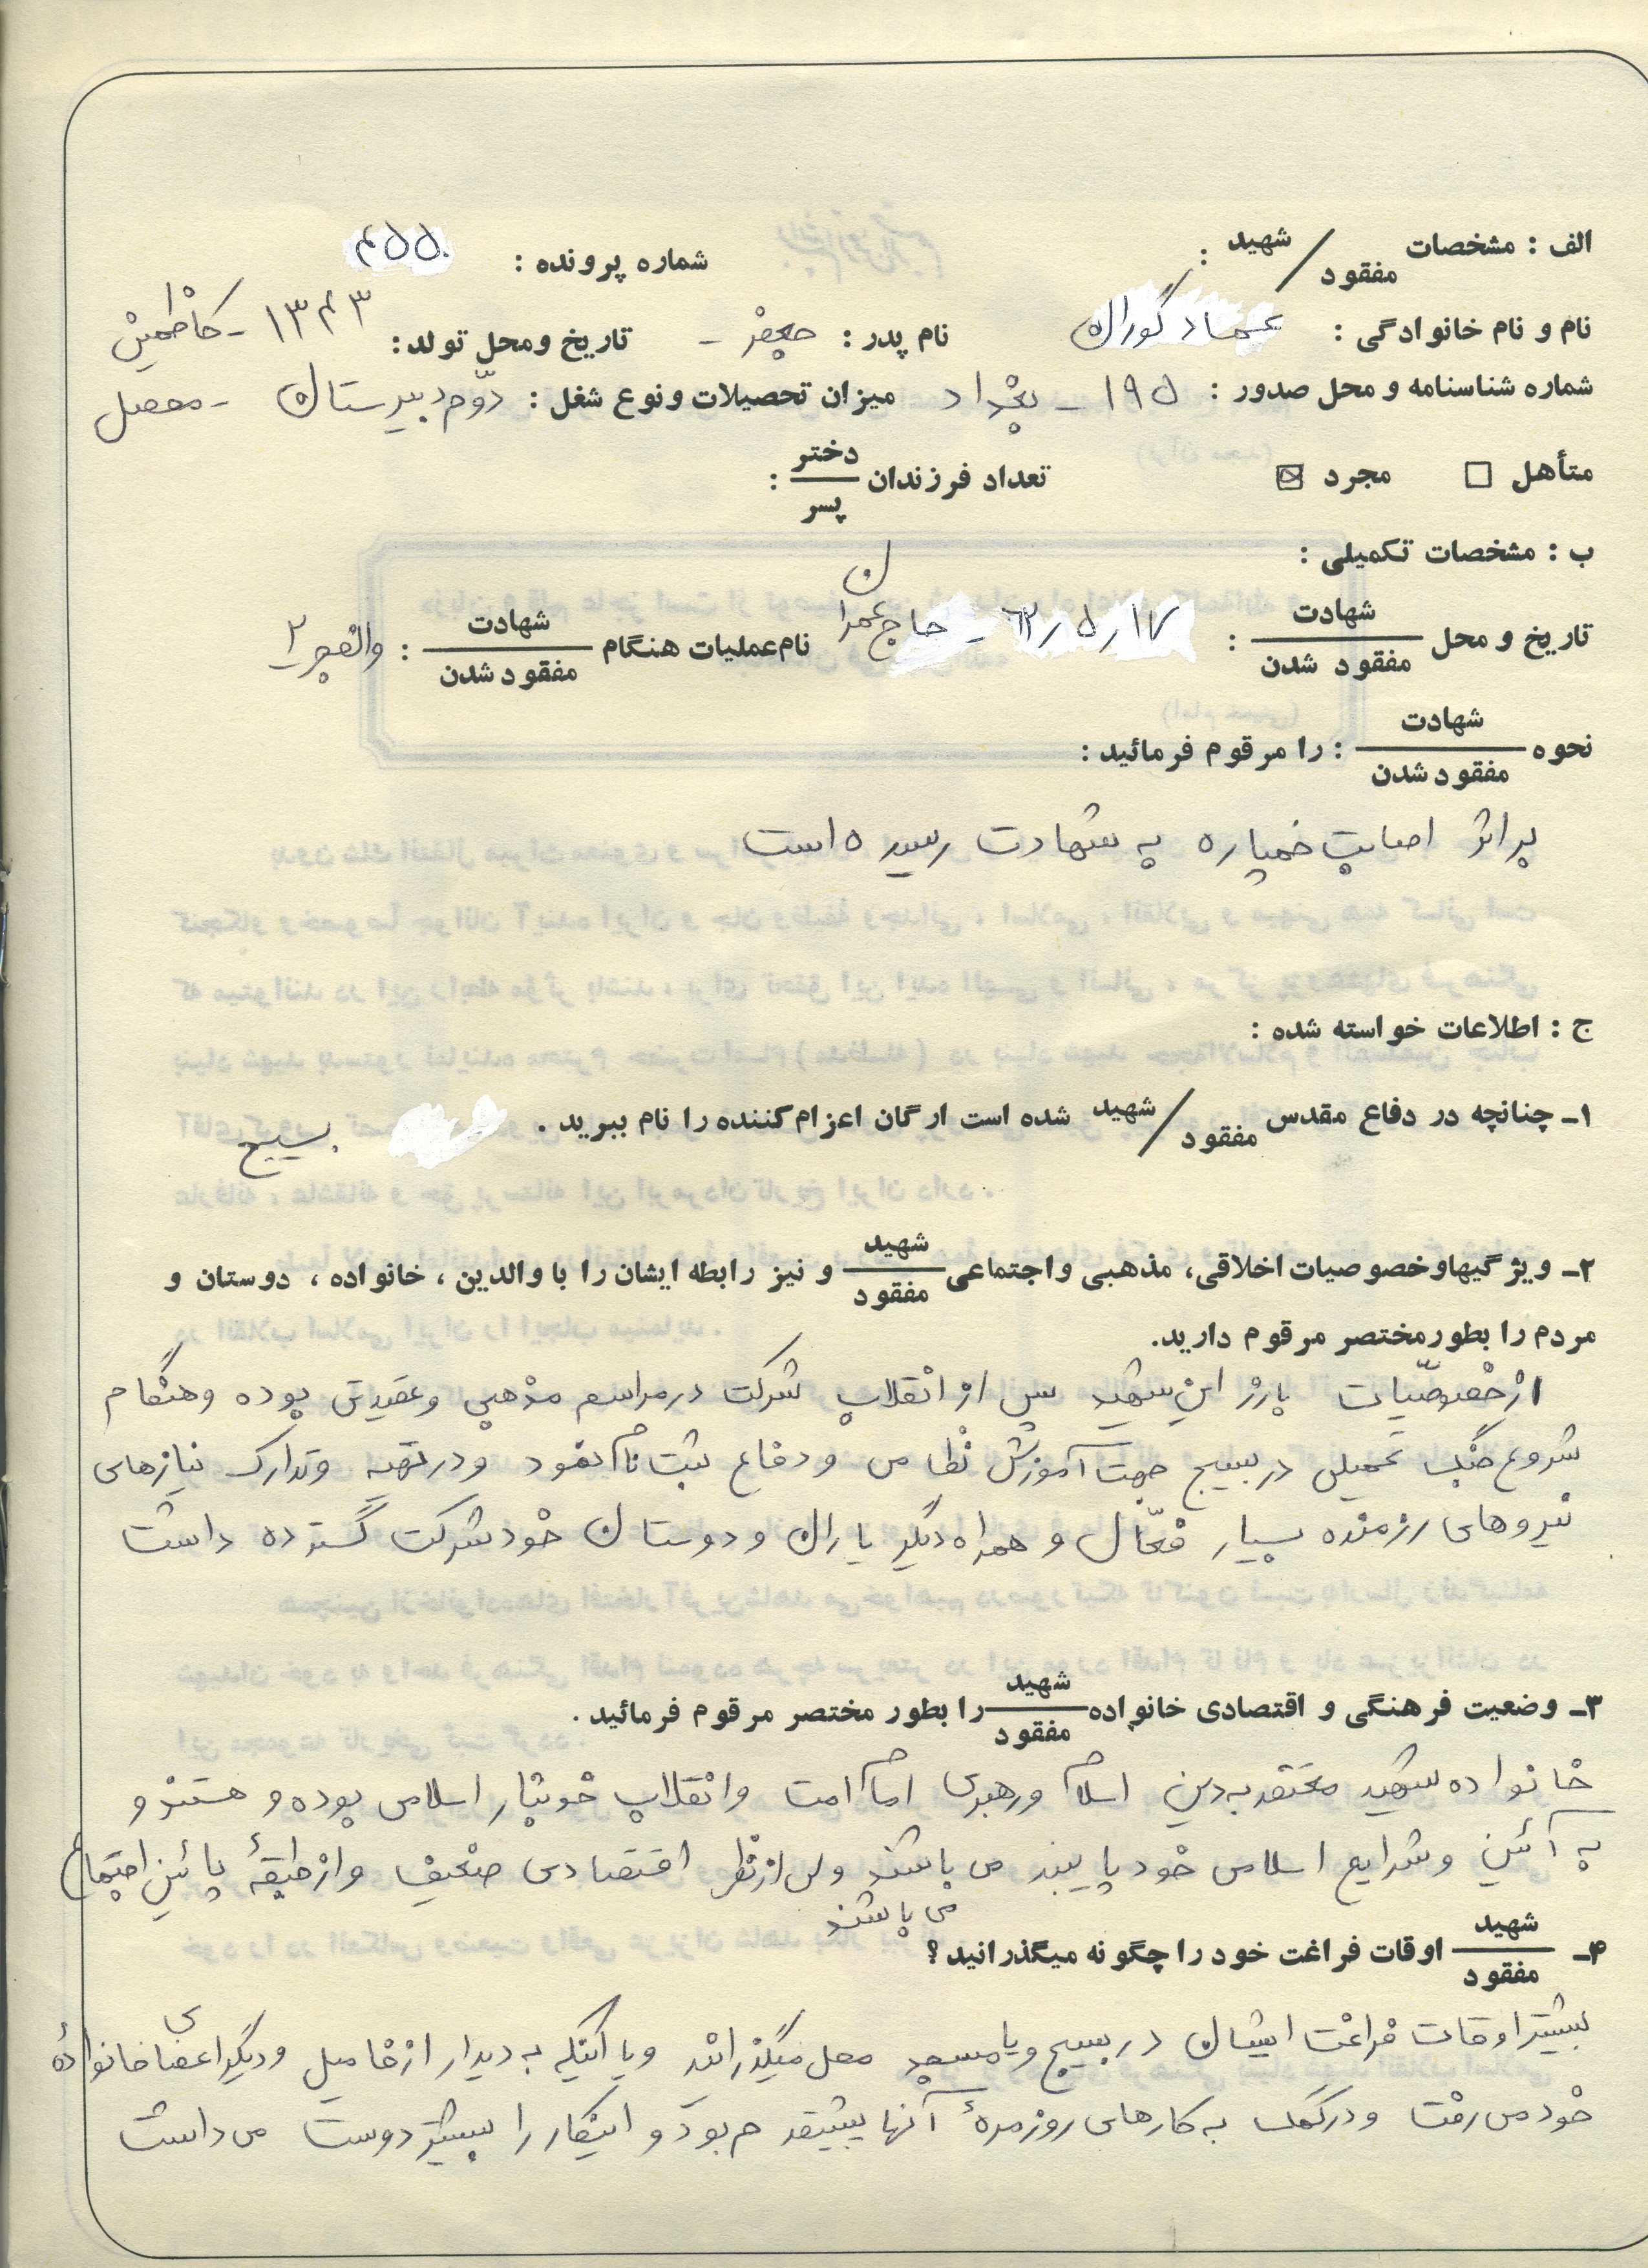 الف : مشخصات شهید / مفقود :
شماره پرونده : ۴۵۵۰
نام و نام خانوادگی : عماد گوران نام پدر : جعفر - تاریخ و محل تولد : ۱۳۴۳ - کاظمین
شماره شناسنامه و محل صدور : ۱۹۵ - بغداد میزان تحصیلات و نوع شغل : دوّم دبیرستان - محصل
متأهل □ مجرد ☒ تعداد فرزندان دختر / پسر :
ب : مشخصات تکمیلی :
تاریخ و محل شهادت / مفقود شدن : ۶۲٫۵٫۱۷ - حاج عمران نام عملیات هنگام شهادت / مفقود شدن : والفجر ۲
نحوه شهادت / مفقود شدن : را مرقوم فرمائید :
براثر اصابت خمپاره به شهادت رسیده است
ج : اطلاعات خواسته شده :
۱ـ چنانچه در دفاع مقدس شهید / مفقود شده است ارگان اعزام کننده را نام ببرید . بسیج
۲ـ ویژگیها و خصوصیات اخلاقی، مذهبی و اجتماعی شهید / مفقود و نیز رابطه ایشان را با والدین ، خانواده ، دوستان و
مردم را بطور مختصر مرقوم دارید.
از خصوصیّات بارز این شهید پس از انقلاب شرکت در مراسم مذهبی و عقیدتی بوده و هنگام
شروع جنگ تحمیلی در بسیج جهت آموزش نظامی و دفاع ثبت نام نمود و در تهیه و تدارک نیازهای
نیروهای رزمنده بسیار فعّال و همراه دیگر یاران و دوستان خود شرکت گسترده داشت
۳ـ وضعیت فرهنگی و اقتصادی خانواده شهید / مفقود را بطور مختصر مرقوم فرمائید .
خانواده شهید معتقد به دین اسلام و رهبری امام امت و انقلاب خونبار اسلامی بوده و هستند و
به آئین و شرایع اسلامی خود پایبند می باشند ولی از نظر اقتصادی ضعیف و از طبقهٔ پائین اجتماع
می باشند
۴ـ شهید / مفقود اوقات فراغت خود را چگونه میگذرانید ؟
بیشتر اوقات فراغت ایشان در بسیج و یا مسجد محل میگذراند و یا اینکه به دیدار از فامیل و دیگر اعضای خانوادهٔ
خود می رفت و در کمک به کارهای روزمرهٔ آنها پیشقدم بود و اینکار را بیشتر دوست می داشت